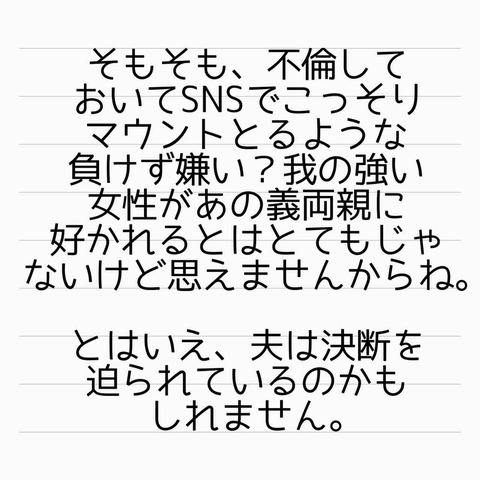 そもそも、不倫して
おいてSNSでこっそり
マウントとるような
負けず嫌い？我の強い
女性があの義両親に
好かれるとはとてもじゃ
ないけど思えませんからね。
とはいえ、夫は決断を
迫られているのかも
しれません。